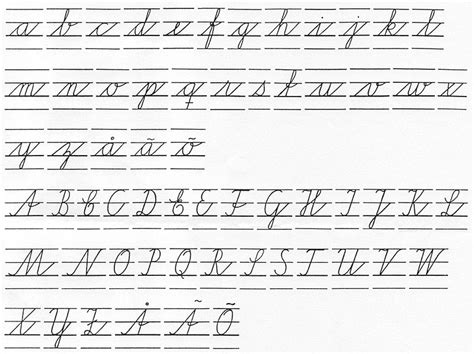 a b c d e f g h i j k l
m n o p q r s t u v w x
y z å ã õ
A B C D E F G H I J K L
M N O P Q R S T U V W
X Y Z Å Ã Õ